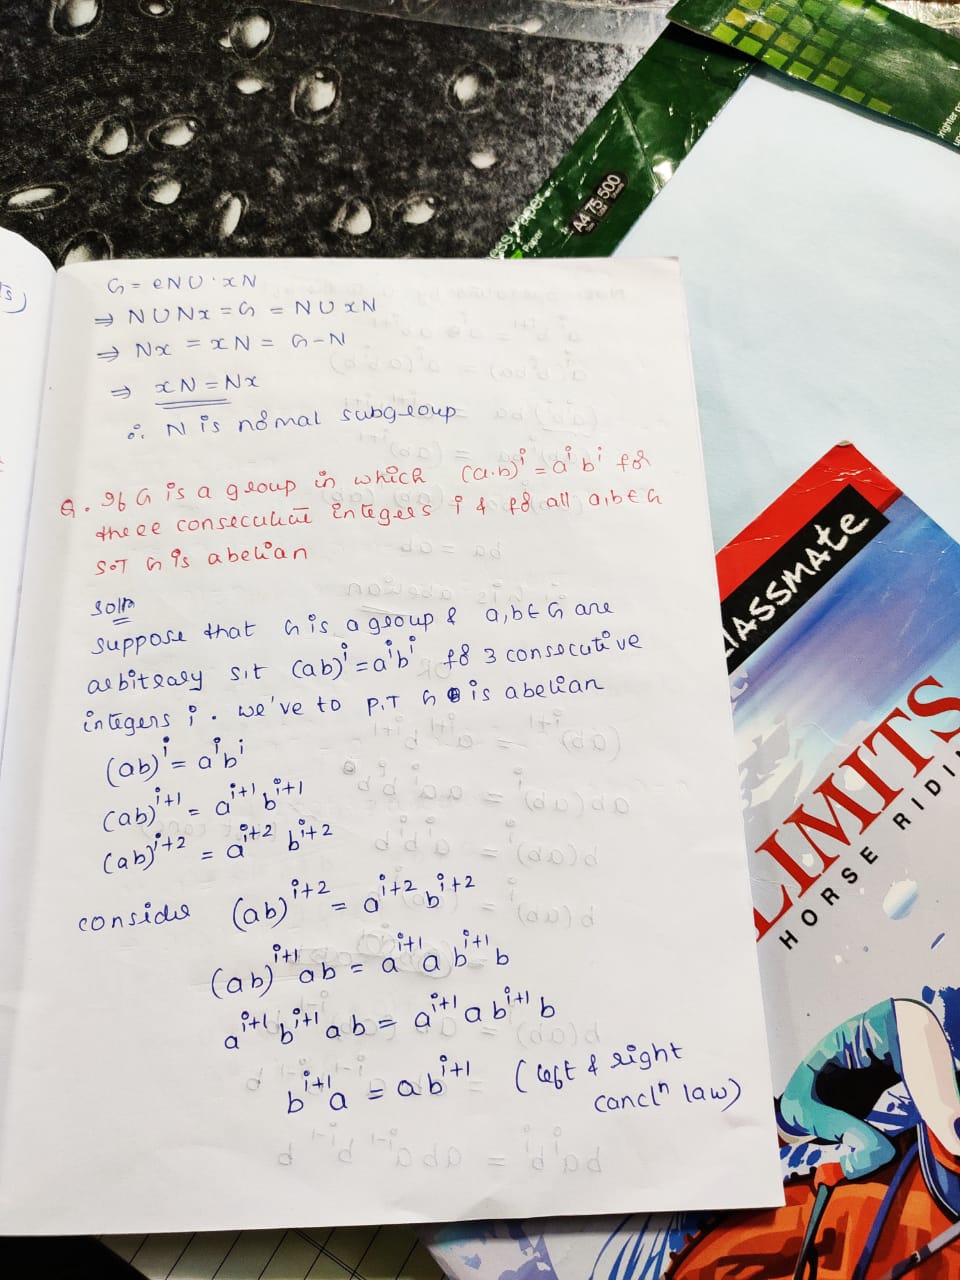 G = eN U xN
⇒ N U Nx = G = N U xN
⇒ Nx = xN = G-N
⇒ xN = Nx
∴ N is normal subgroup
Q. If G is a group in which (a.b)^i = a^i b^i for
three consecutive integers i & for all a,b ∈ G
S.T G is abelian
Soln
Suppose that G is a group & a,b ∈ G are
arbitrary s.t (ab)^i = a^i b^i for 3 consecutive
integers i. we've to P.T G is abelian
(ab)^i = a^i b^i
(ab)^i+1 = a^i+1 b^i+1
(ab)^i+2 = a^i+2 b^i+2
consider (ab)^i+2 = a^i+2 b^i+2
(ab)^i+1 ab = a^i+1 a b^i+1 b
a^i+1 b^i+1 ab = a^i+1 a b^i+1 b
b^i+1 a = a b^i+1 (left & right
cancln law)
A4 75 500
Paper
CLASSMATE
LIMITS
HORSE RIDIN